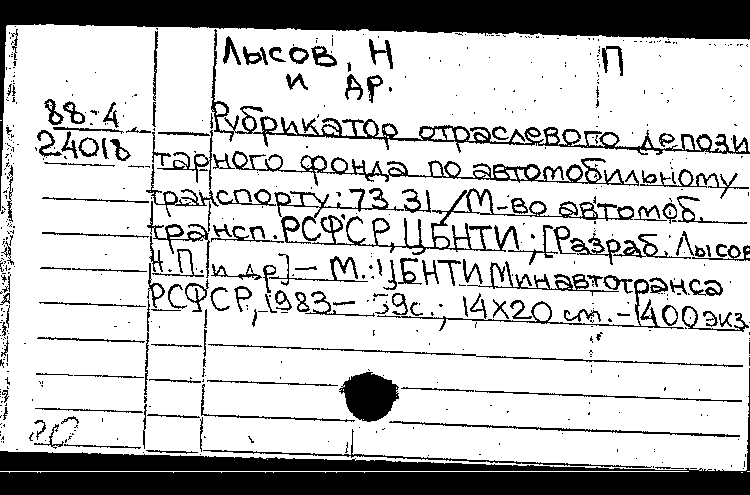 Лысов, Н П
и др.
88-4
24018
Рубрикатор отраслевого депози
тарного фонда по автомобильному
транспорту: 73.31 / М-во автомоб.
трансп. РСФСР, ЦБНТИ ; [Разраб. Лысов
Н.П. и др] – М. : ЦБНТИ Минавтотранса
РСФСР, 1983. – 59с. ; 14X20 см. – 1400 экз.
20